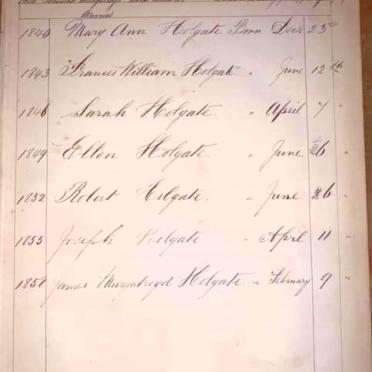 Married
1840 Mary Ann Holgate Born Decr 23rd
1843 Francis William Holgate " June 12th
1846 Sarah Holgate. " April 7 "
1849 Ellen Holgate. " June 6 "
1852 Robert Holgate. " June 6 "
1855 Joseph Holgate " April 11 "
1858 James Murgatroyd Holgate. " February 9 "